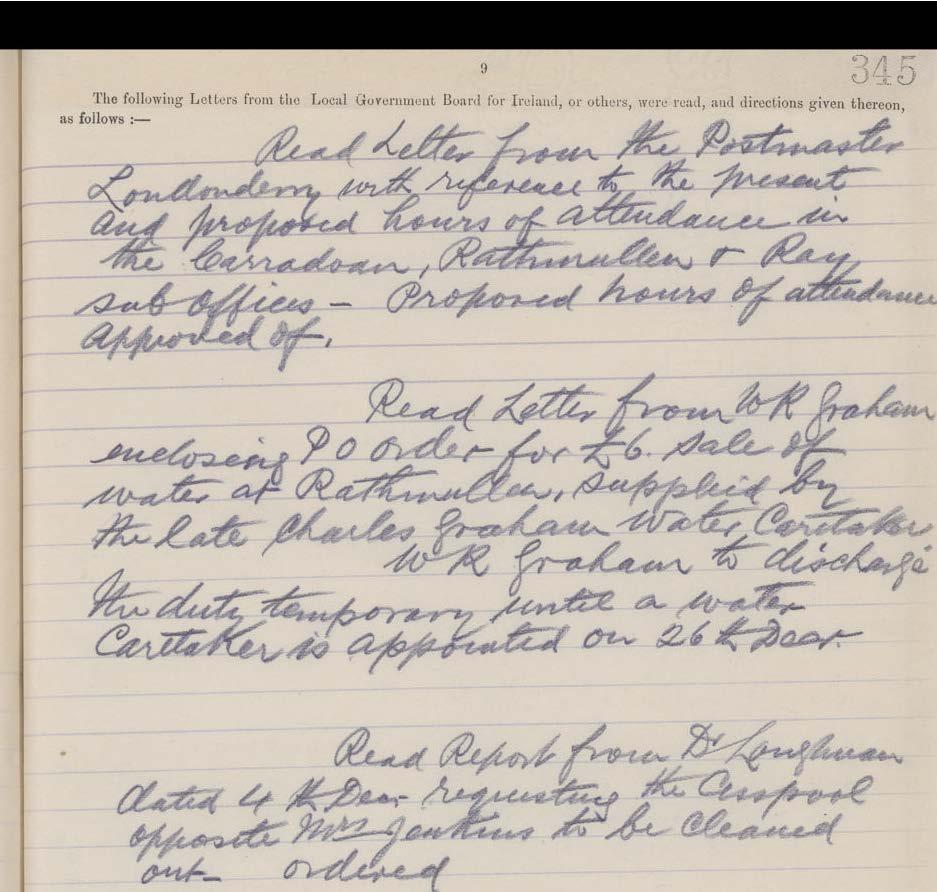 9
345
The following Letters from the Local Government Board for Ireland, or others, were read, and directions given thereon,
as follows :—
Read Letter from the Postmaster
Londonderry with reference to the present
and proposed hours of attendance in
the Carradoan, Rathmullen & Ray
sub offices – Proposed hours of attendance
approved of.
Read Letter from W R Graham
enclosing P O order for £6. sale of
water at Rathmullen, supplied by
the late Charles Graham Water Caretaker
W R Graham to discharge
the duty temporary until a water
Caretaker is appointed on 26th Decr.
Read Report from Dr
dated 4th Decr requesting the Cesspool
opposite Mrs Jenkins to be cleaned
out – ordered